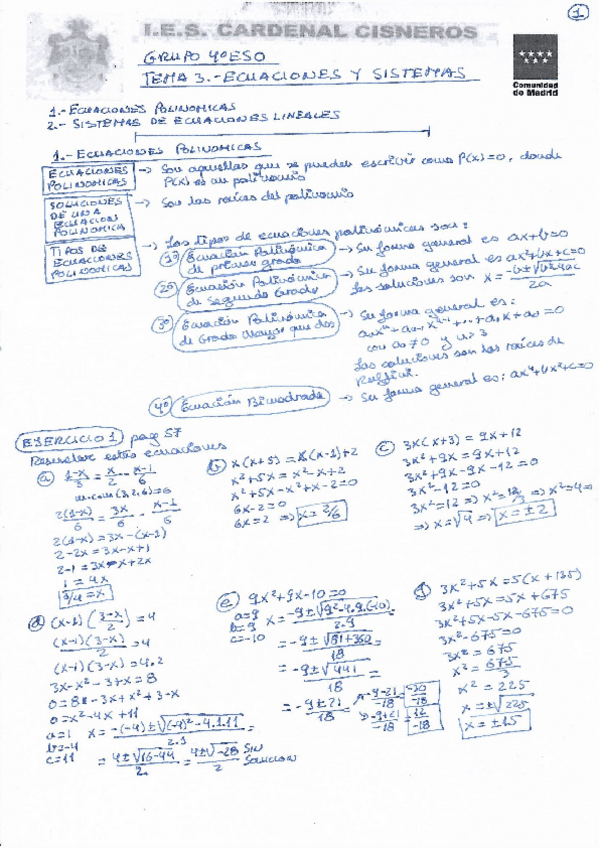 1
I.E.S. CARDENAL CISNEROS
GRUPO 4º ESO
TEMA 3.- ECUACIONES Y SISTEMAS
Comunidad
de Madrid
1.- ECUACIONES POLINOMICAS
2.- SISTEMAS DE ECUACIONES LINEALES
1.- ECUACIONES POLINOMICAS
ECUACIONES POLINOMICAS → Son aquellas que se pueden escribir como P(x)=0, donde
P(x) es un polinomio
SOLUCIONES DE UNA ECUACION POLINOMICA → Son las raíces del polinomio
TIPOS DE ECUACIONES POLINOMICAS → Los tipos de ecuaciones polinómicas son:
1º Ecuación Polinómica de primer grado → Su forma general es ax+b=0
2º Ecuación Polinómica de Segundo Grado → Su forma general es ax²+bx+c=0
las soluciones son x = -b±√b²-4ac / 2a
3º Ecuación Polinómica de Grado Mayor que dos → Su forma general es:
con a≠0 y n>3
Las soluciones son las raíces de
Ruffini.
4º Ecuación Bicuadrada → Su forma general es: ax⁴+bx²+c=0
EJERCICIO 1 pag 57
Resolver estas ecuaciones
a) 1-x/3 = x/2 - x-1/6
m.c.m (3,2,6)=6
2(1-x)/6 = 3x/6 - x-1/6
2(1-x) = 3x-(x-1)
2-2x = 3x-x+1
2-1 = 3x-x+2x
1 = 4x
1/4 = x
b) x²+5x = x²-x+2
x²+5x-x²+x-2=0
6x-2=0
6x=2 ⇒ x=2/6
c) 3x(x+3) = 9x+12
3x²+9x = 9x+12
3x²+9x-9x-12=0
3x²-12=0
3x²=12 ⇒ x²=12/3 ⇒ x²=4 ⇒
⇒ x=√4 ⇒ x=±2
d) (x-1)(3-x/2)=4
(x-1)(3-x)/2 = 4
(x-1)(3-x)=4.2
3x-x²-3+x=8
0=8-3x+x²+3-x
0=x²-4x+11
a=1
b=-4
c=11
x = -(-4)±√(-4)²-4.1.11 / 2.1 =
= 4±√16-44 / 2 = 4±√-28 / 2 SIN
SOLUCION
e) 9x²+9x-10=0
a=9
b=9
c=-10
x = -9±√9²-4.9.(-10) / 2.9
= -9±√81+360 / 18 =
= -9±√441 / 18 =
= -9±21 / 18
f) 3x²+5x=5(x+135)
3x²+5x=5x+675
3x²+5x-5x-675=0
3x²-675=0
3x²=675
x²=675/3
x²=225
x=±√225
x=±15